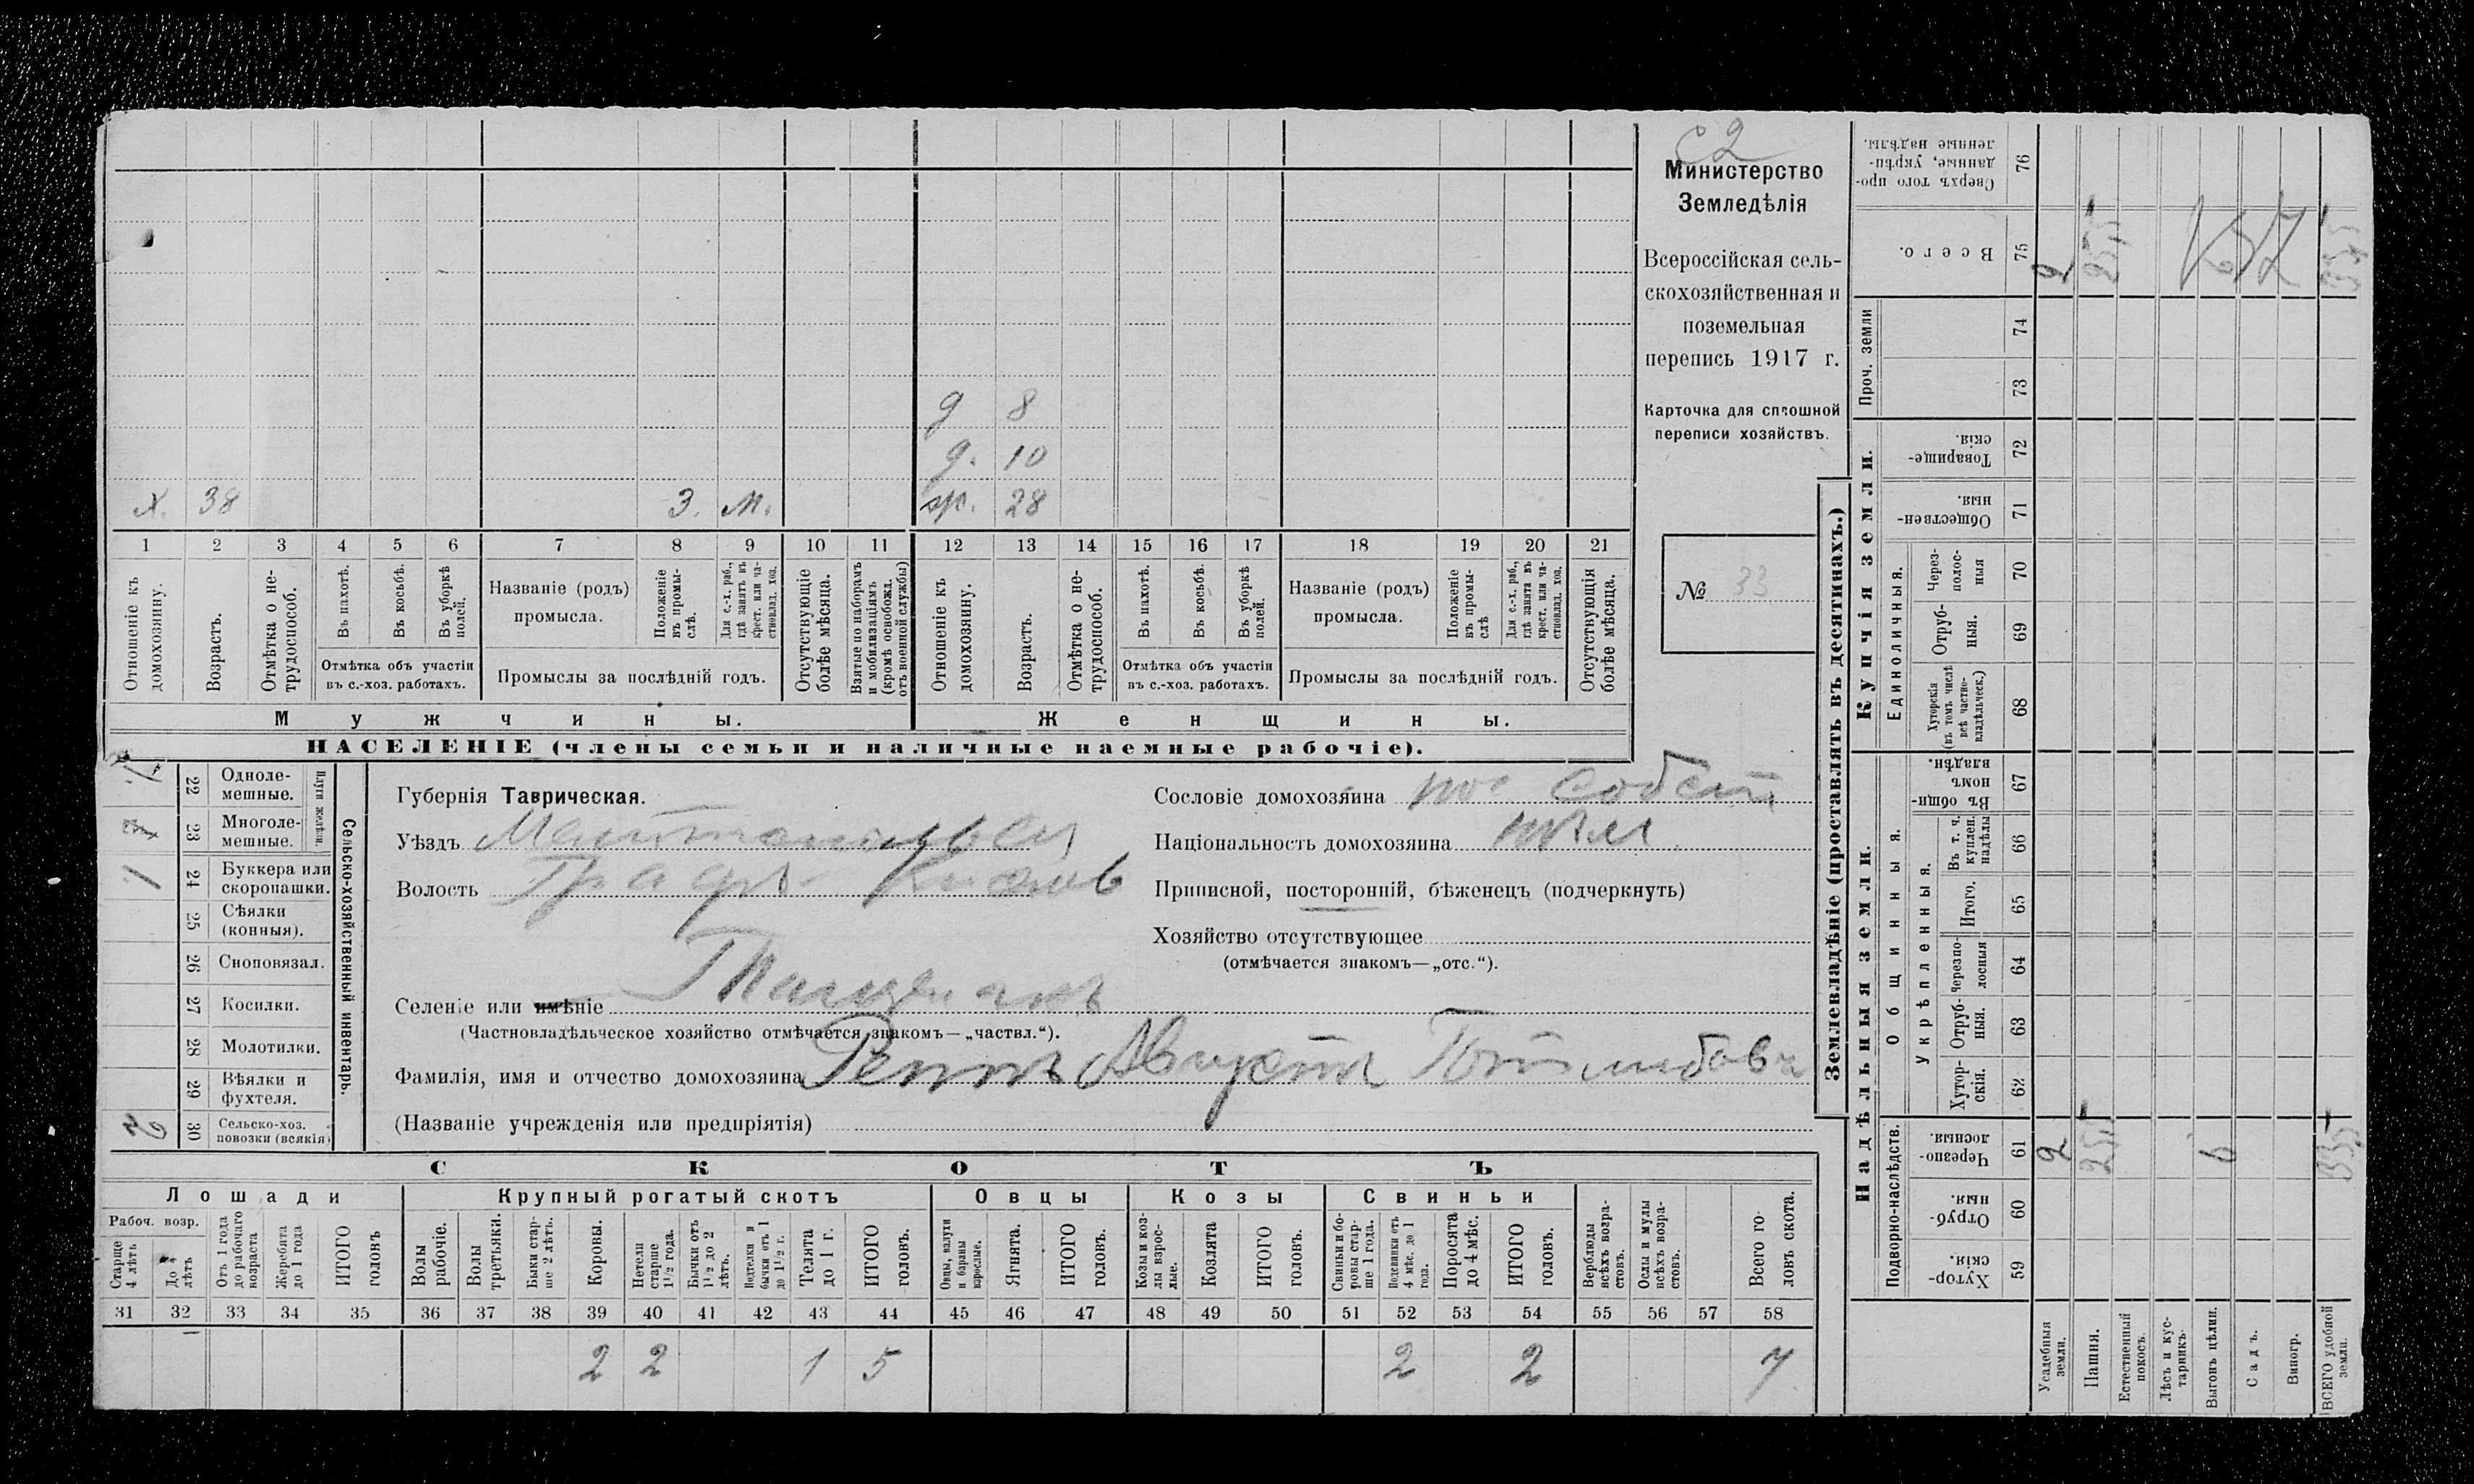 Министерство
Земледѣлія
Всероссійская сель-
скохозяйственная и
поземельная
перепись 1917 г.
Карточка для сплошной
переписи хозяйствъ.
№ 33
д 8
д. 10
х. 38 З. м. 28
1 2 3 4 5 6 7 8 9 10 11 12 13 14 15 16 17 18 19 20 21
Отношеніе къ домохозяину.
Возрастъ.
Отмѣтка о не-трудоспособ.
Въ пахотѣ.
Въ косьбѣ.
Въ уборкѣ полей.
Отмѣтка объ участіи
въ с.-хоз. работахъ.
Названіе (родъ)
промысла.
Положеніе въ промы-слѣ.
Для с.-х. раб., гдѣ занятъ въ крест. или ча-стновлад. хоз.
Промыслы за послѣдній годъ.
Отсутствующіе болѣе мѣсяца.
Взятые по наборамъ и мобилизаціямъ (кромѣ освобожд. отъ военной службы)
Отношеніе къ домохозяину.
Возрастъ.
Отмѣтка о не-трудоспособ.
Въ пахотѣ.
Въ косьбѣ.
Въ уборкѣ полей.
Отмѣтка объ участіи
въ с.-хоз. работахъ.
Названіе (родъ)
промысла.
Положеніе въ промы-слѣ
Для с.-х. раб., гдѣ занята въ крест. или ча-стновлад. хоз.
Промыслы за послѣдній годъ.
Отсутствующія болѣе мѣсяца.
Мужчины.
Женщины.
НАСЕЛЕНІЕ (члены семьи и наличные наемные рабочіе).
Сельско-хозяйственный инвентарь.
Плуги желѣзн.
22 Одноле-мешные.
23 Многоле-мешные.
24 Буккера или скоропашки. 1
25 Сѣялки (конныя).
26 Сноповязал.
27 Косилки.
28 Молотилки.
29 Вѣялки и фухтеля.
30 Сельско-хоз. повозки (всякія)
Губернія Таврическая.
Уѣздъ
Волость
Селеніе или имѣніе
(Частновладѣльческое хозяйство отмѣчается знакомъ—„частвл.“).
Фамилія, имя и отчество домохозяина Реппъ Августъ Готлибовъ
(Названіе учрежденія или предпріятія)
Сословіе домохозяина пос. собств
Національность домохозяина
Приписной, посторонній, бѣженецъ (подчеркнуть)
Хозяйство отсутствующее
(отмѣчается знакомъ—„отс.“).
СКОТЪ
Лошади
Крупный рогатый скотъ
Овцы
Козы
Свиньи
Рабоч. возр.
Старше 4 лѣтъ
До 4 лѣтъ
Отъ 1 года до рабочаго возраста
Жеребята до 1 года
ИТОГО головъ
Волы рабочіе.
Волы третьяки.
Быки стар-ше 2 лѣтъ.
Коровы.
Нетели старше 1½ года.
Бычки отъ 1½ до 2 лѣтъ.
Подтелки и бычки отъ 1 до 1½ г.
Телята до 1 г.
ИТОГО головъ.
Овцы, валухи и бараны взрослые.
Ягнята.
ИТОГО головъ.
Козы и коз-лы взрос-лые.
Козлята
ИТОГО головъ.
Свиньи и бо-ровы стар-ше 1 года.
Подсвинки отъ 4 мѣс. до 1 года.
Поросята до 4 мѣс.
ИТОГО головъ.
Верблюды всѣхъ возра-стовъ.
Ослы и мулы всѣхъ возра-стовъ.
Всего го-ловъ скота.
31 32 33 34 35 36 37 38 39 40 41 42 43 44 45 46 47 48 49 50 51 52 53 54 55 56 57 58
2 2 1 5 2 2 7
Землевладѣніе (проставлять въ десятинахъ.)
Надѣльныя земли.
Купчія земли.
Проч. земли
Подворно-наслѣдств.
Общинныя.
Укрѣпленныя.
Единоличныя.
59 Хутор-скія.
60 Отруб-ныя.
61 Черезпо-лосныя.
62 Хутор-скія.
63 Отруб-ныя.
64 Черезпо-лосныя
65 Итого.
66 Въ т. ч. куплен. надѣлы
67 Въ общин-номъ владѣн.
68 Хуторскія (въ томъ числѣ всѣ частно-владѣльческ.)
69 Отруб-ныя.
70 Черезполос-ныя
71 Обществен-ныя.
72 Товарище-скія.
73
74
75 Всего.
76 Сверхъ того про-данные, укрѣп-ленные надѣлы.
Усадебныя земли. 2 2
Пашня.
Естественный покосъ.
Лѣсъ и кус-тарникъ.
Выгонъ цѣлин. 6
Садъ.
Виногр.
ВСЕГО удобной земли.